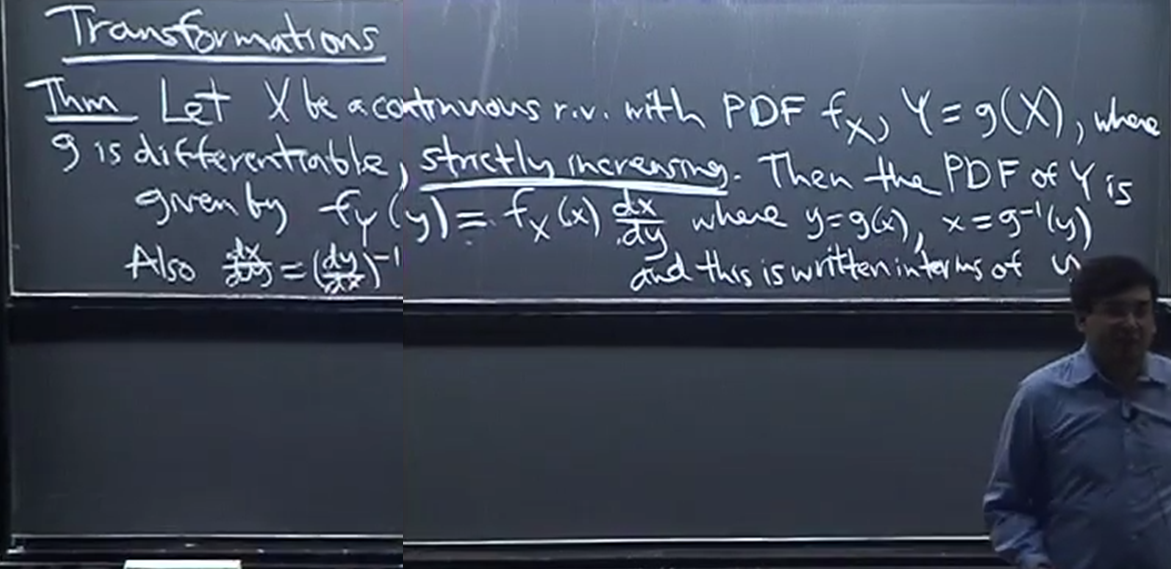 Transformations
Thm Let X be a continuous r.v. with PDF f_X, Y = g(X), where
g is differentiable, strictly increasing. Then the PDF of Y is
given by f_Y(y) = f_X(x) dx/dy where y = g(x), x = g⁻¹(y)
Also dx/dy = (dy/dx)⁻¹ and this is written in terms of